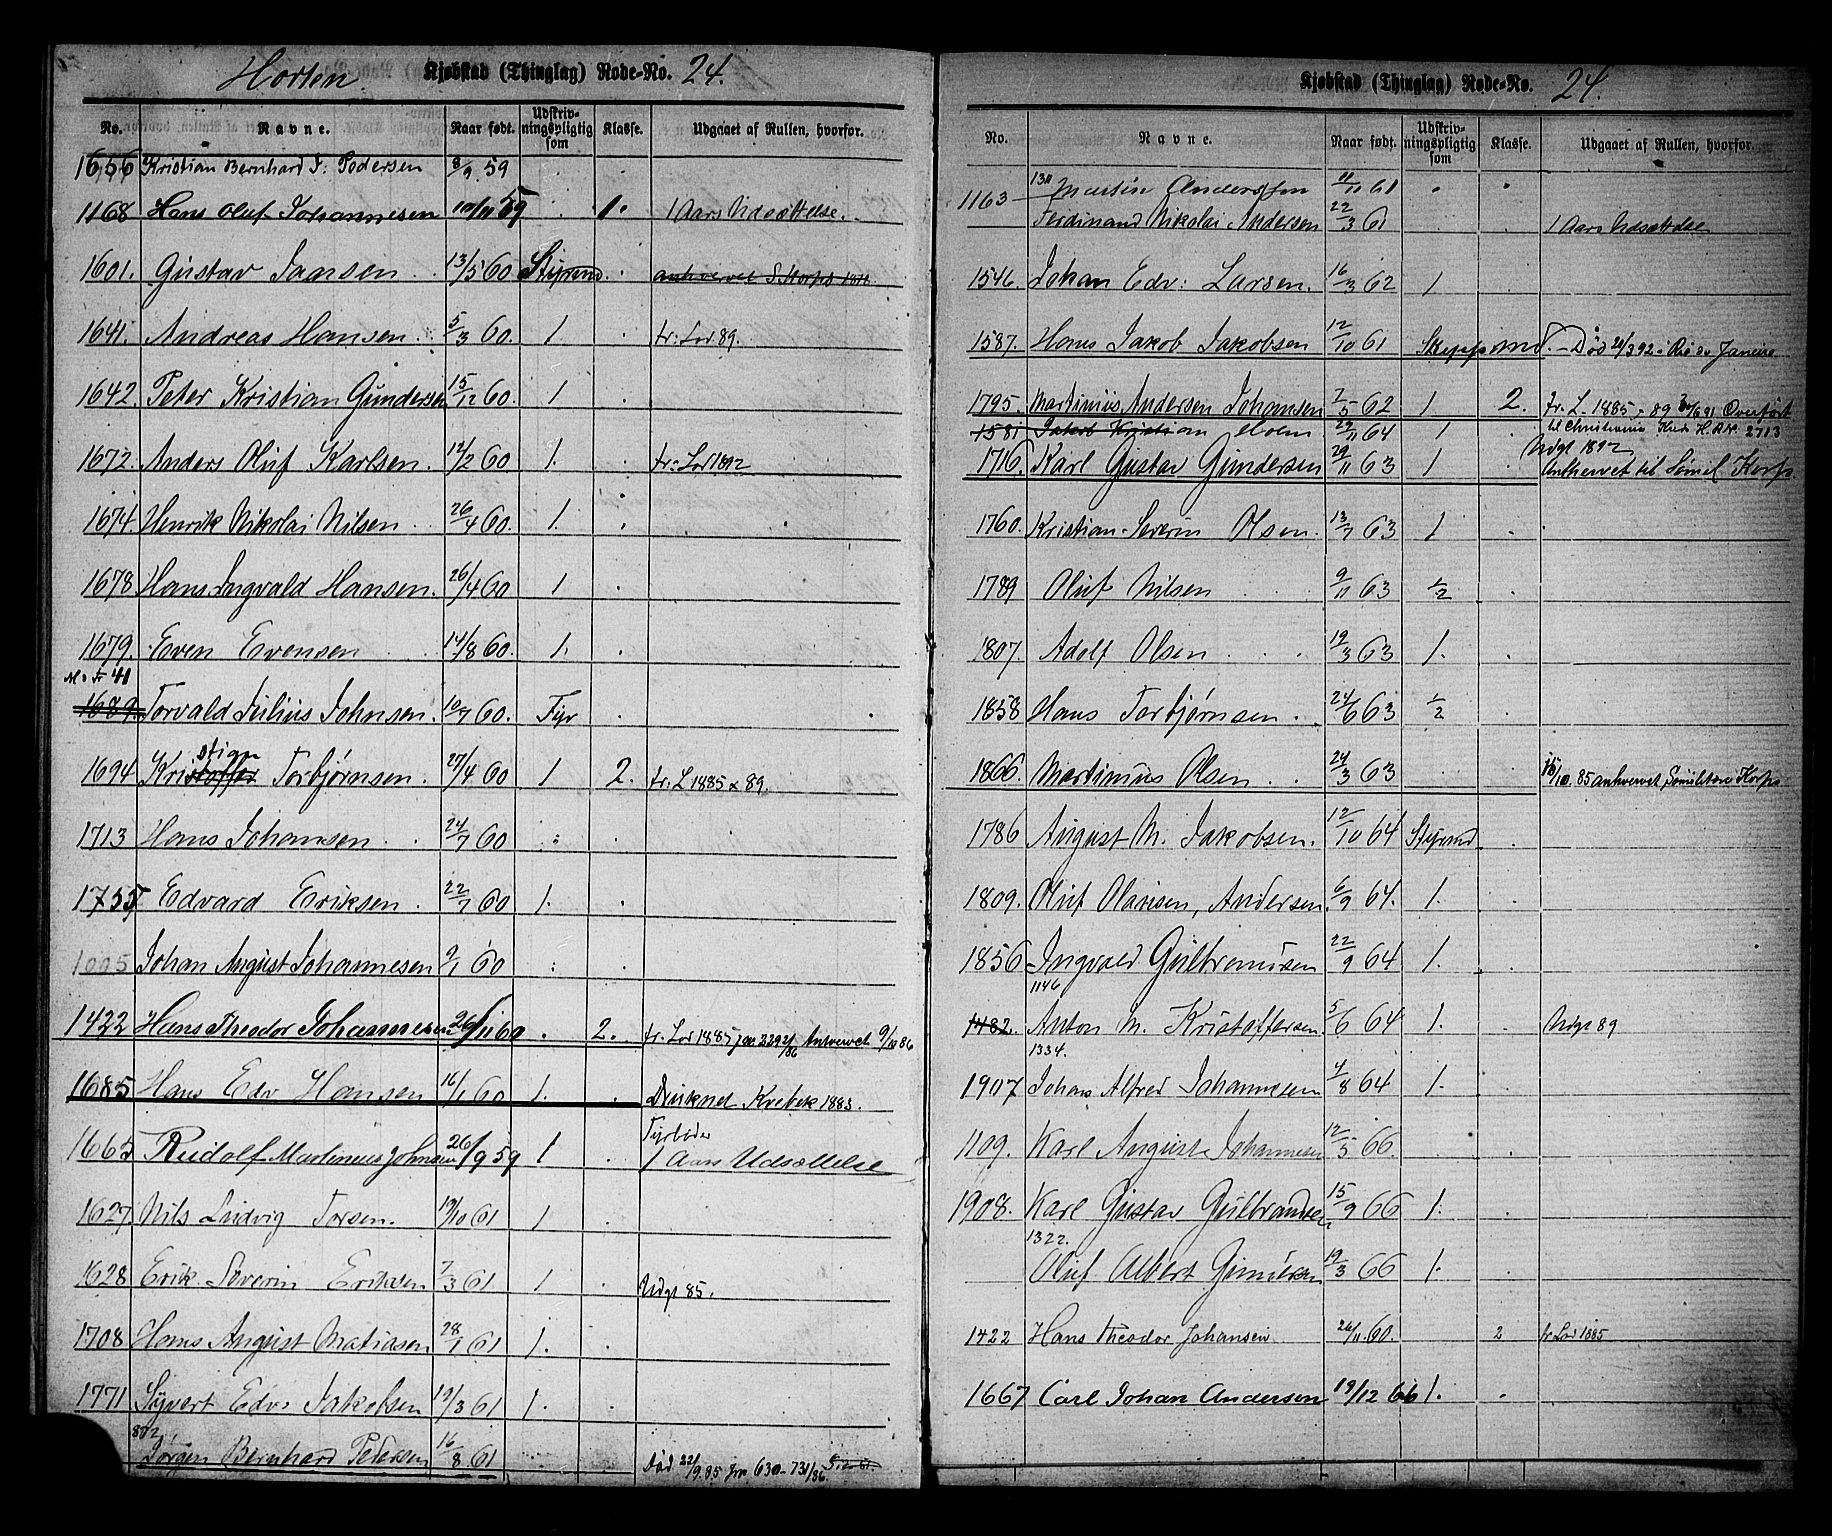 Horten Kjøbstad (Thinglag) Rode-No. 24.
No. Navne. Naar født. Udskrivningspligtig som Klasse. Udgaaet af Rullen, hvorfor.
1656 Kristian Bernhard F: Pedersen 8/9 59
1168 Hans Oluf Johannesen 10/11 59 1. 1 Aars Udsættelse.
1601. Gustav Jansen 13/5 60 Styrmd. anhvervet S. Korps
1641. Andreas Hansen 5/3 60. 1. fr: Lod 89.
1642. Peter Kristian Gundersen 15/12 60. 1
1672. Anders Oluf Karlsen. 12/2 60 1. fr: Lod 1892
1674. Henrik Nikolai Nilsen 26/4 60. 1.
1678 Hans Ingvald Hansen. 26/4 60 1
1679. Even Evensen 14/8 60. 1.
41
1689. Torvald Julius Johnsen. 10/7 60. Fyr
stian
1694 Kristoffer Torbjørnsen. 27/4 60 1 2. fr. L 1885 x 89.
1713 Hans Johansen 24/7 60
1755 Edvard Eriksen 22/7 60 1.
1005 Johan August Johannesen 9/1 60
1422 Hans Theodor Johannesen 26/11 60 2. fr. Lod 1885 Jnr 229 2/86 Anhvervet 9/10 86
1685 Hans Edv Hansen 16/1 60 1. Druknet Kvebek 1883.
Fyrbøder
1665 Rudolf Martinius Johnsen 26/9 59 1 1 Aars Udsættelse
1627 Nils Ludvig Torsen. 19/10 61 1
1628 Erik Severin Eriksen 7/3 61 1 Udgt 85.
1708 Hans August Matisen 28/1 61 1.
1771 Syvert Edv. Jakobsen 19/3 61 1.
802
Jørgen Bernhard Pedersen 16/8 61 Død 22/9 85 Jnr 630-731/86
Kjøbstad (Thinglag) Rode-No. 24.
No. Navne. Naar født. Udskrivningspligtig som Klasse. Udgaaet af Rullen, hvorfor.
1311 Martin Andersen 11/11 61
1163 Ferdinand Nikolai Andersen 22/3 61 1 Aars Udsættelse
1546. Johan Edv: Larsen. 16/3 62 1
1587. Hans Jakob Jakobsen 12/10 61 Død 20/3 92. Rio de Janeiro
1795. Martinius Andersen Johansen 7/5 62 1 2. fr. L. 1885 - 89 Overført
til Christiania Krds H. A No. 2713
1581 Jakob Kristian Moen 29/11 64 1 Udgt 1892
1716. Karl Gustav Gundersen 29/11 63 1 Anhvervet til Sømil Korps
1760. Kristian Severin Olsen. 13/7 63 1
1789 Oluf Nilsen 9/11 63 1/2
1807. Adolf Olsen 19/3 63 1.
1858 Hans Torbjørnsen 24/6 63 1/2
1866. Martinius Olsen 24/3 63 15/10. 85 anhvervet Sømilitære Korps
1786 August M. Jakobsen. 12/10 64 Styrmd
1809. Oluf Olausen, Andersen. 6/9 64. 1.
1856 Ingvald Gulbrandsen 22/9 64 1.
1146
1482. Anton M. Kristoffersen 5/6 64 1. Udgt 89
1334.
1907 Johan Alfred Johannesen 4/8 64 1.
1109. Karl August Johannesen 12/5 66.
1908. Karl Gustav Gulbrandsen 15/9 66 1.
1322.
Oluf Albert Gundersen 19/3 66 1.
1422 Hans Theodor Johansen 26/11. 60. 2 fr Lod 1885
1667 Carl Johan Andersen 19/12 66 1.